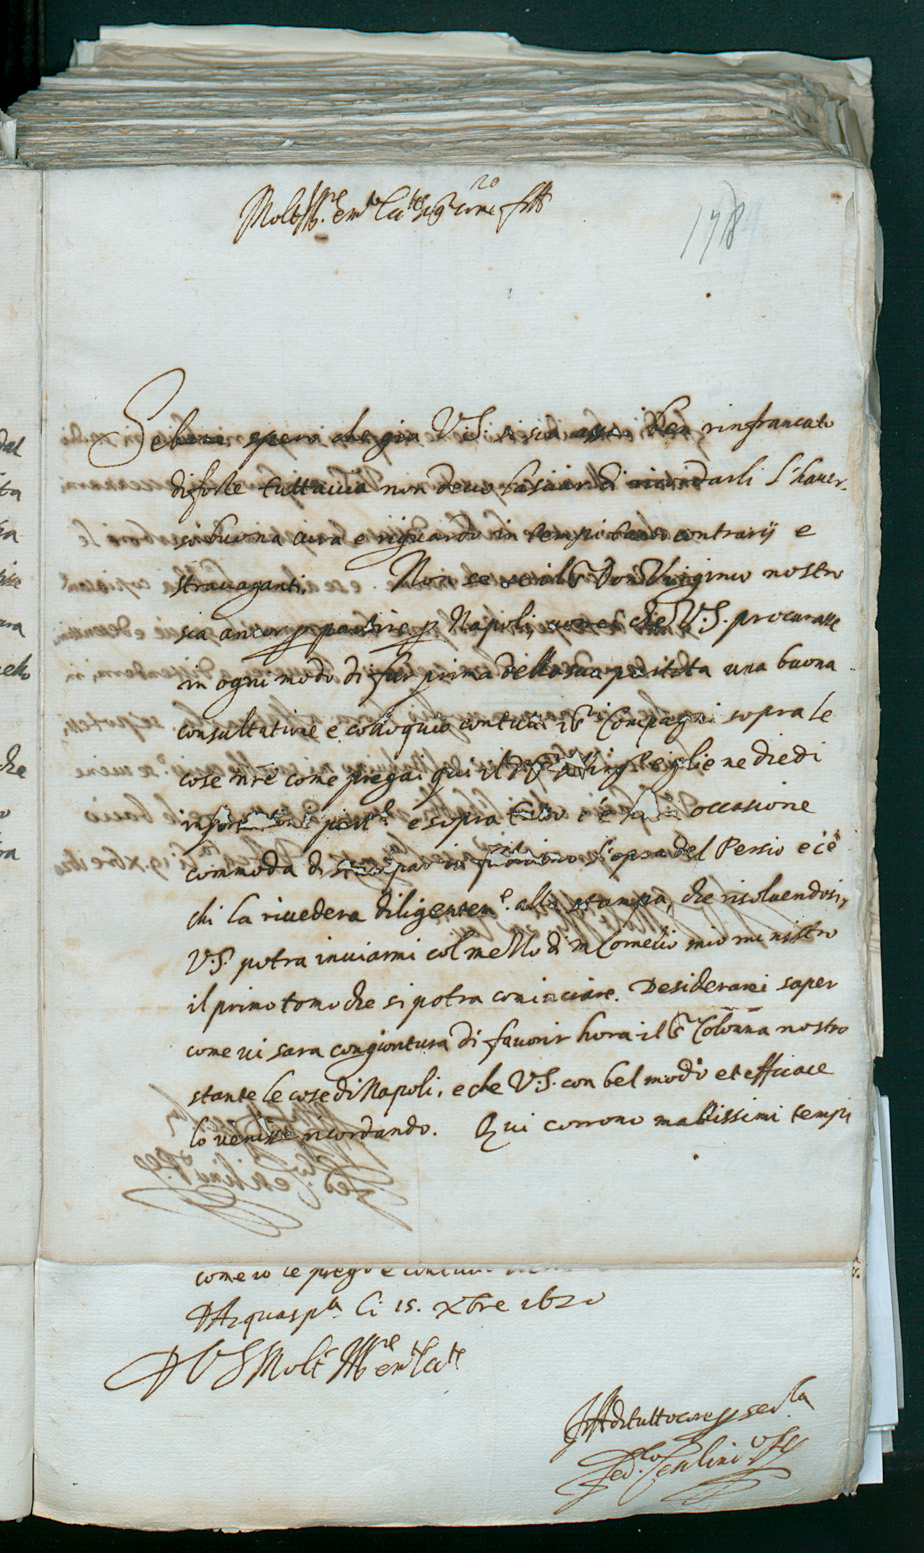 Molt' Ill.re e m.to Ecc.te sig.r mio ss.mo
178
Se bene spero che gia V.S. si sia assai ben rinfrancato
di forze tuttavia non devo lasciar di ricordarli l'haver-
si buona cura e riguardo in tempi tanto contrarij e
stravaganti. Non so se il S.r Don Virginio nostro
sia ancor p partire p Napoli, vorrei che V.S. procurasse
in ogni modo di far prima della sua partita una buona
consultatione e colloquio con tutti i S.ri Compagni sopra le
cose n're come pregai qui il e gliene diedi
part.re e sopra tutto e occasione
commoda di stampar in l'opra del Persio e c'è
chi la rivedera diligentem.e alla stampa, che risolvendosi,
V.S. potra inviarmi col mezzo di m Cornelio mio ministro
il primo tomo che si potra cominciare. Desiderarei saper
come vi sara congiontura di favorir hora il S.r Colonna nostro
stante le cose di Napoli, e che V.S. con bel modo et efficace
lo venisse ricordando. Qui corrono mallissimi tempi
come io le prego e
D'Acquasp.ta li 15. Xbre 1620
D V S Molt' Ill.re e m.to Ecc.te
Aff.mo di tutto core p ser.la
Fed.co Cesi Linc.o P.